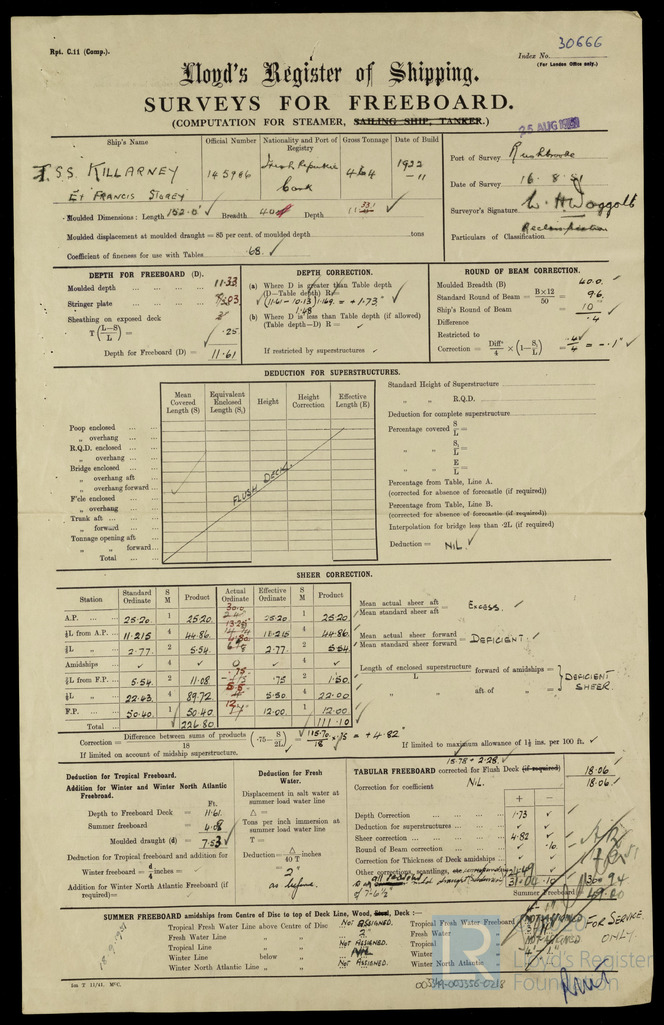 Rpt. C.11 (Comp.).
Index No. 30666
(For London Office only.)
Lloyd's Register of Shipping.
SURVEYS FOR FREEBOARD.
(COMPUTATION FOR STEAMER, SAILING SHIP, TANKER.)
25 AUG
Ship's Name
Official Number
Nationality and Port of Registry
Gross Tonnage
Date of Build
S.S. KILLARNEY
Ex FRANCIS STOREY
145966
Irish Republic
Cork
464
1922
-11
Port of Survey Rushbrooke
Date of Survey 16.8.51
Surveyor's Signature
Particulars of Classification Reclassification
Moulded Dimensions: Length 152.0 Breadth 40 Depth
Moulded displacement at moulded draught = 85 per cent. of moulded depth tons
Coefficient of fineness for use with Tables .68
DEPTH FOR FREEBOARD (D).
Moulded depth 11.33
Stringer plate
Sheathing on exposed deck 3"
T(L-S/L) = .25
Depth for Freeboard (D) = 11.61
DEPTH CORRECTION.
(a) Where D is greater than Table depth
(D—Table depth) R =
(11.61 - 10.13) 1.169 = +1.73"
1.48
(b) Where D is less than Table depth (if allowed)
(Table depth—D) R =
If restricted by superstructures
ROUND OF BEAM CORRECTION.
Moulded Breadth (B) 40.0
Standard Round of Beam = B×12/50 = 9.6
Ship's Round of Beam = 10
Difference .4
Restricted to
Correction = Diff/4 × (1-S₁/L) = .4/4 = -.1"
DEDUCTION FOR SUPERSTRUCTURES.
Mean Covered Length (S)
Equivalent Enclosed Length (S₁)
Height
Height Correction
Effective Length (E)
Poop enclosed
„ overhang
R.Q.D. enclosed
„ overhang
Bridge enclosed
„ overhang aft
„ overhang forward
F'cle enclosed
„ overhang
Trunk aft
„ forward
Tonnage opening aft
„ „ forward
Total
FLUSH DECK.
Standard Height of Superstructure
„ „ R.Q.D.
Deduction for complete superstructure
Percentage covered S/L =
„ „ S₁/L =
„ „ E/L =
Percentage from Table, Line A.
(corrected for absence of forecastle (if required))
Percentage from Table, Line B.
(corrected for absence of forecastle (if required))
Interpolation for bridge less than ·2L (if required)
Deduction = NIL.
SHEER CORRECTION.
Station
Standard Ordinate
S M
Product
Actual Ordinate
Effective Ordinate
S M
Product
A.P. 25.20 1 25.20 30.0 25.20 1 25.20
⅙L from A.P. 11.215 4 44.86 11.215 4 44.86
⅓L „ 2.77 2 5.54 2.77 2 5.54
Amidships 4 0 4
⅓L from F.P. 5.54 2 11.08 .75 .75 2 1.50
⅙L „ 22.43 4 89.72 5.5 5.50 4 22.00
F.P. 50.40 1 50.40 12 12.00 1 12.00
Total 226.80 111.10
Mean actual sheer aft / Mean standard sheer aft = EXCESS.
Mean actual sheer forward / Mean standard sheer forward = DEFICIENT.
Length of enclosed superstructure / L forward of amidships =
„ „ aft of „ =
DEFICIENT SHEER.
Correction = Difference between sums of products / 18 (·75 - S/2L) = 115.70/18 × .75 = +4.82"
If limited on account of midship superstructure.
If limited to maximum allowance of 1½ ins. per 100 ft.
Deduction for Tropical Freeboard.
Addition for Winter and Winter North Atlantic Freeboard.
Ft.
Depth to Freeboard Deck = 11.61
Summer freeboard = 4.08
Moulded draught (d) = 7.53
Deduction for Tropical freeboard and addition for
Winter freeboard = d/4 inches =
Addition for Winter North Atlantic Freeboard (if required) =
Deduction for Fresh Water.
Displacement in salt water at summer load water line
Δ =
Tons per inch immersion at summer load water line
T =
Deduction = Δ/40 T inches
= 2"
as before.
TABULAR FREEBOARD corrected for Flush Deck (if required)
15.78 + 2.28 18.06
Correction for coefficient NIL. 18.06
+ -
Depth Correction 1.73
Deduction for superstructures
Sheer correction 4.82
Round of Beam correction .10
Correction for Thickness of Deck amidships
Other corrections, scantlings,
Summer Freeboard 49.00
SUMMER FREEBOARD amidships from Centre of Disc to top of Deck Line, Wood, Steel, Deck :—
Tropical Fresh Water Line above Centre of Disc NOT ASSIGNED.
Fresh Water Line „ „ 2"
Tropical Line „ „ NOT ASSIGNED.
Winter Line below „ NIL
Winter North Atlantic Line „ „ NOT ASSIGNED.
Tropical Fresh Water Freeboard
Fresh Water „
Tropical „
Winter „
Winter North Atlantic „
FOR SERVICE ONLY.
18.9.1951
5m T 11/41. McC.
003349-003356-0218
Lloyd's Register
Foundation